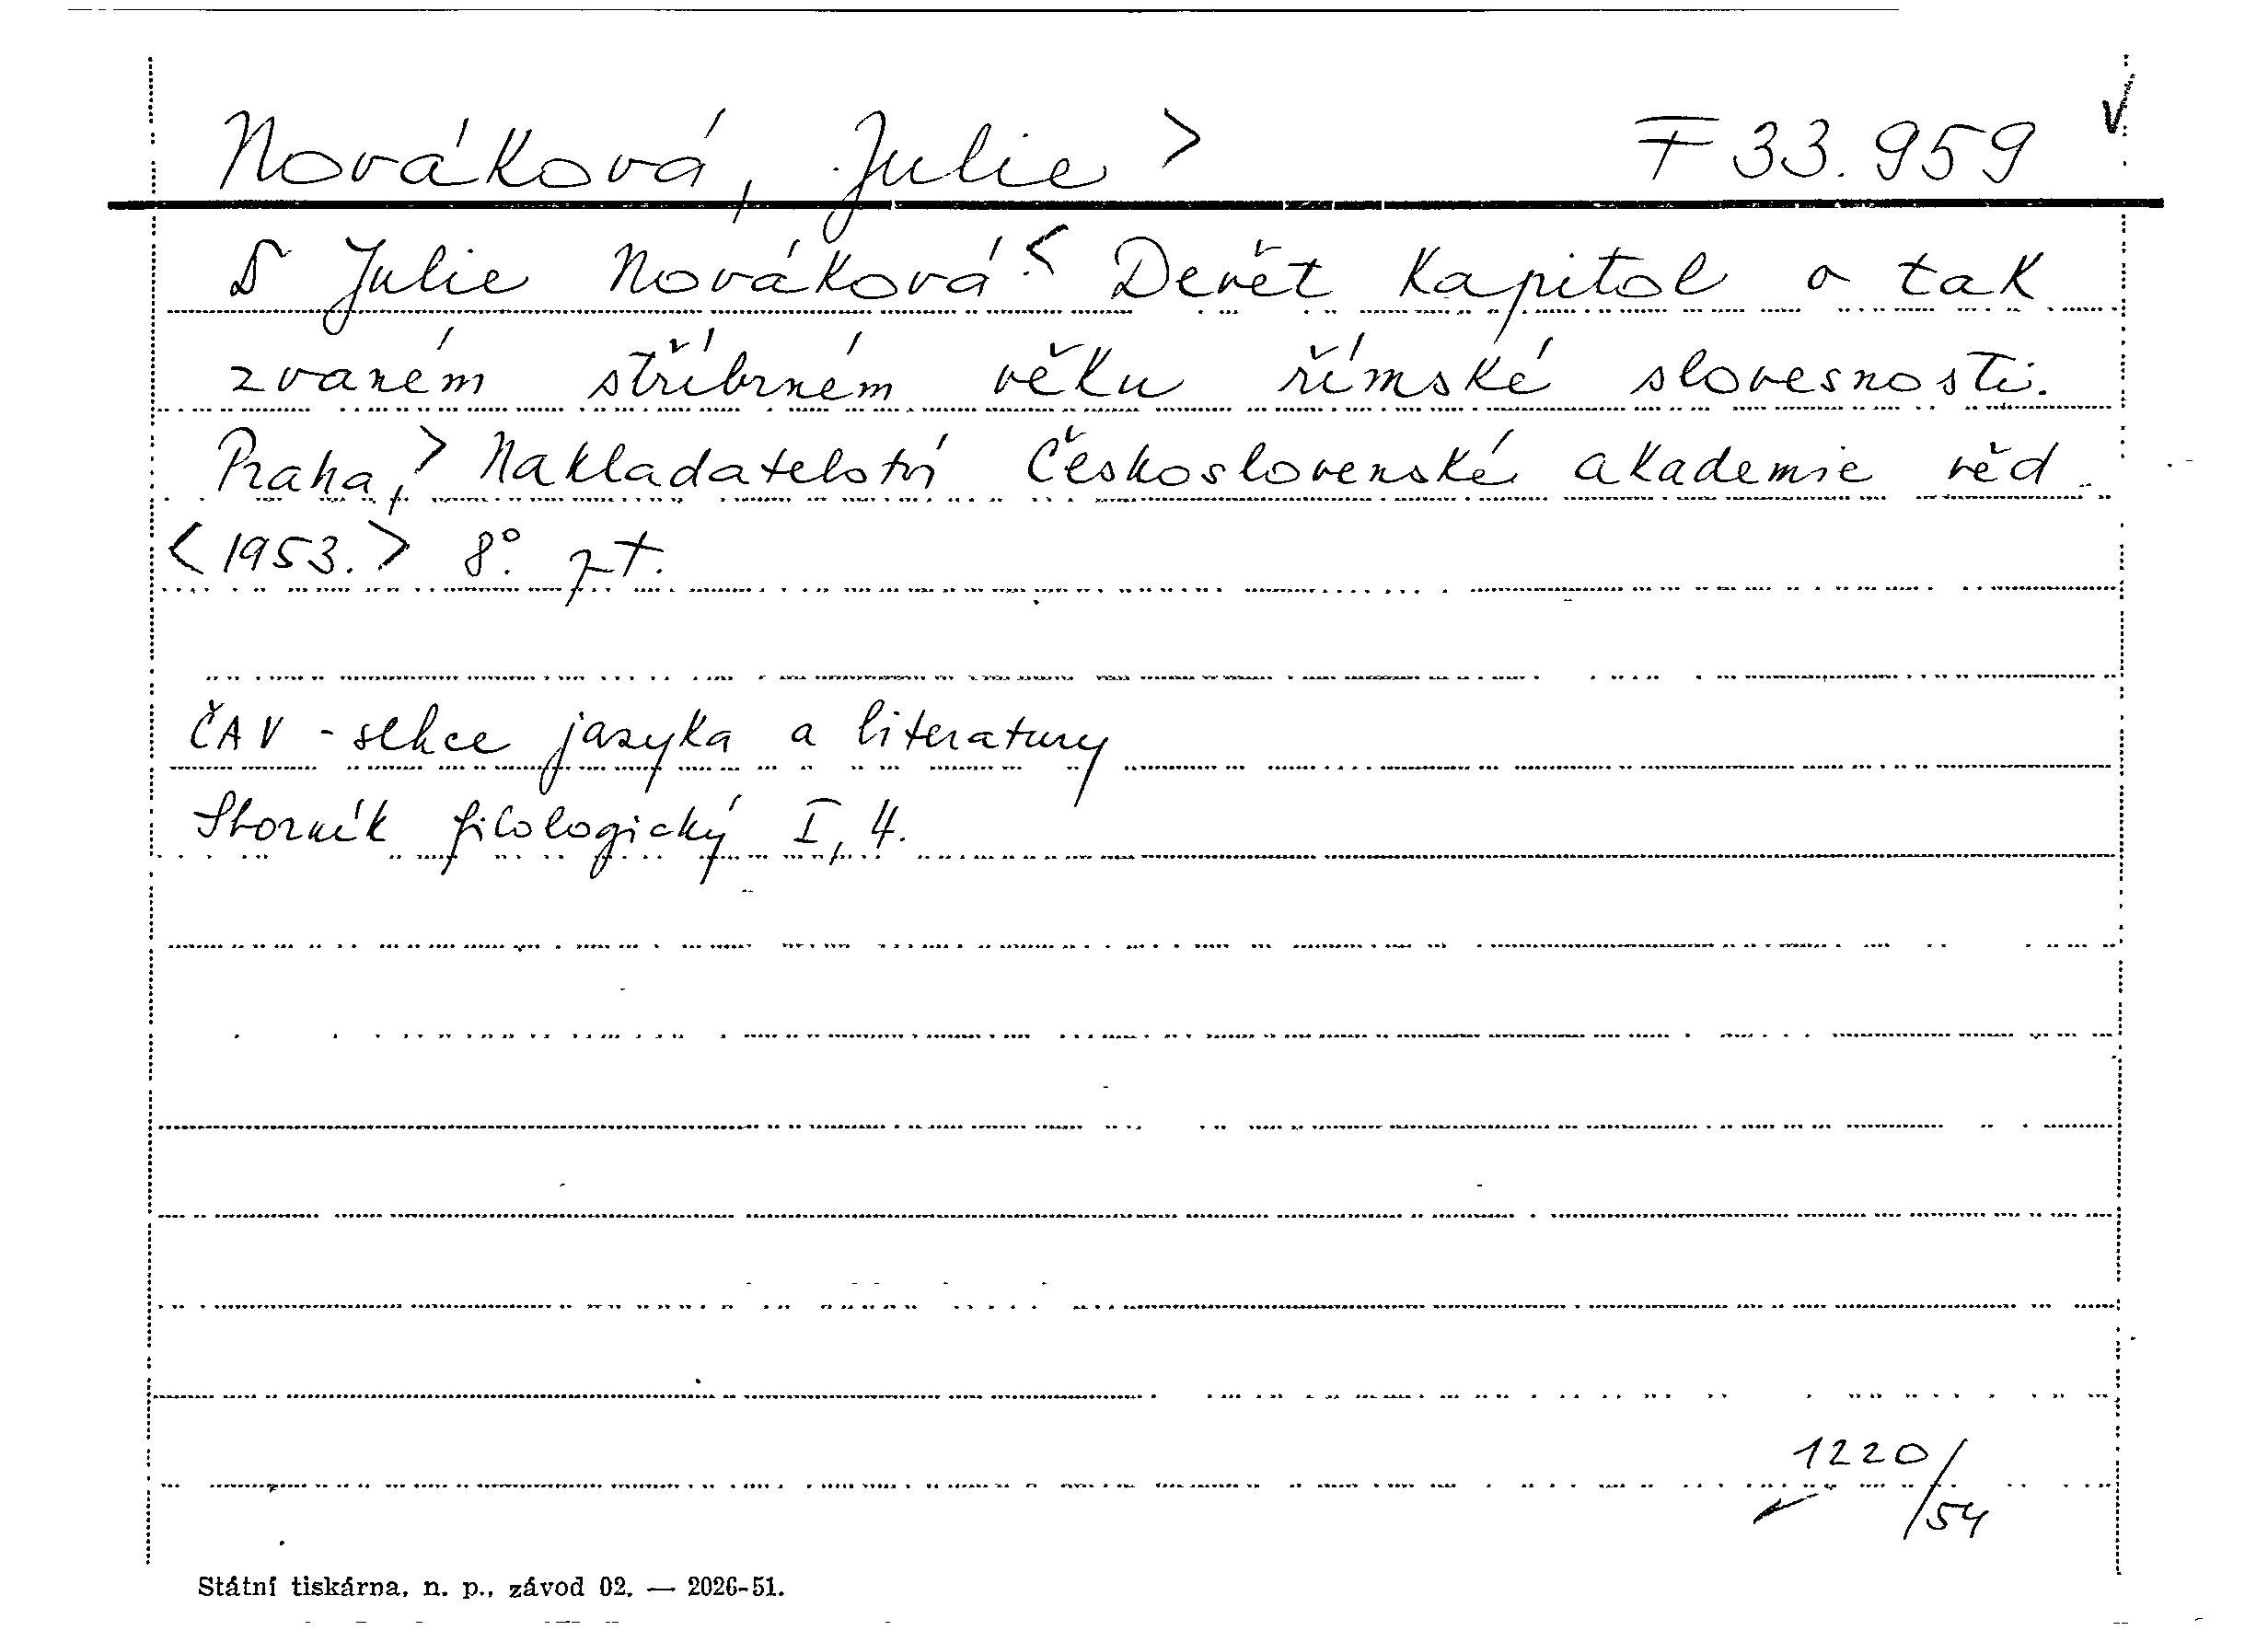 Nováková, Julie > F 33.959
Julie Nováková < Devět kapitol o tak
zvaném stříbrném věku římské slovesnosti.
Praha, > Nakladatelství Československé akademie věd
<1953.> 8°. zt.
ČAV - sekce jazyka a literatury
Sborník filologický I, 4.
1220/54
Státní tiskárna, n. p., závod 02. — 2026-51.